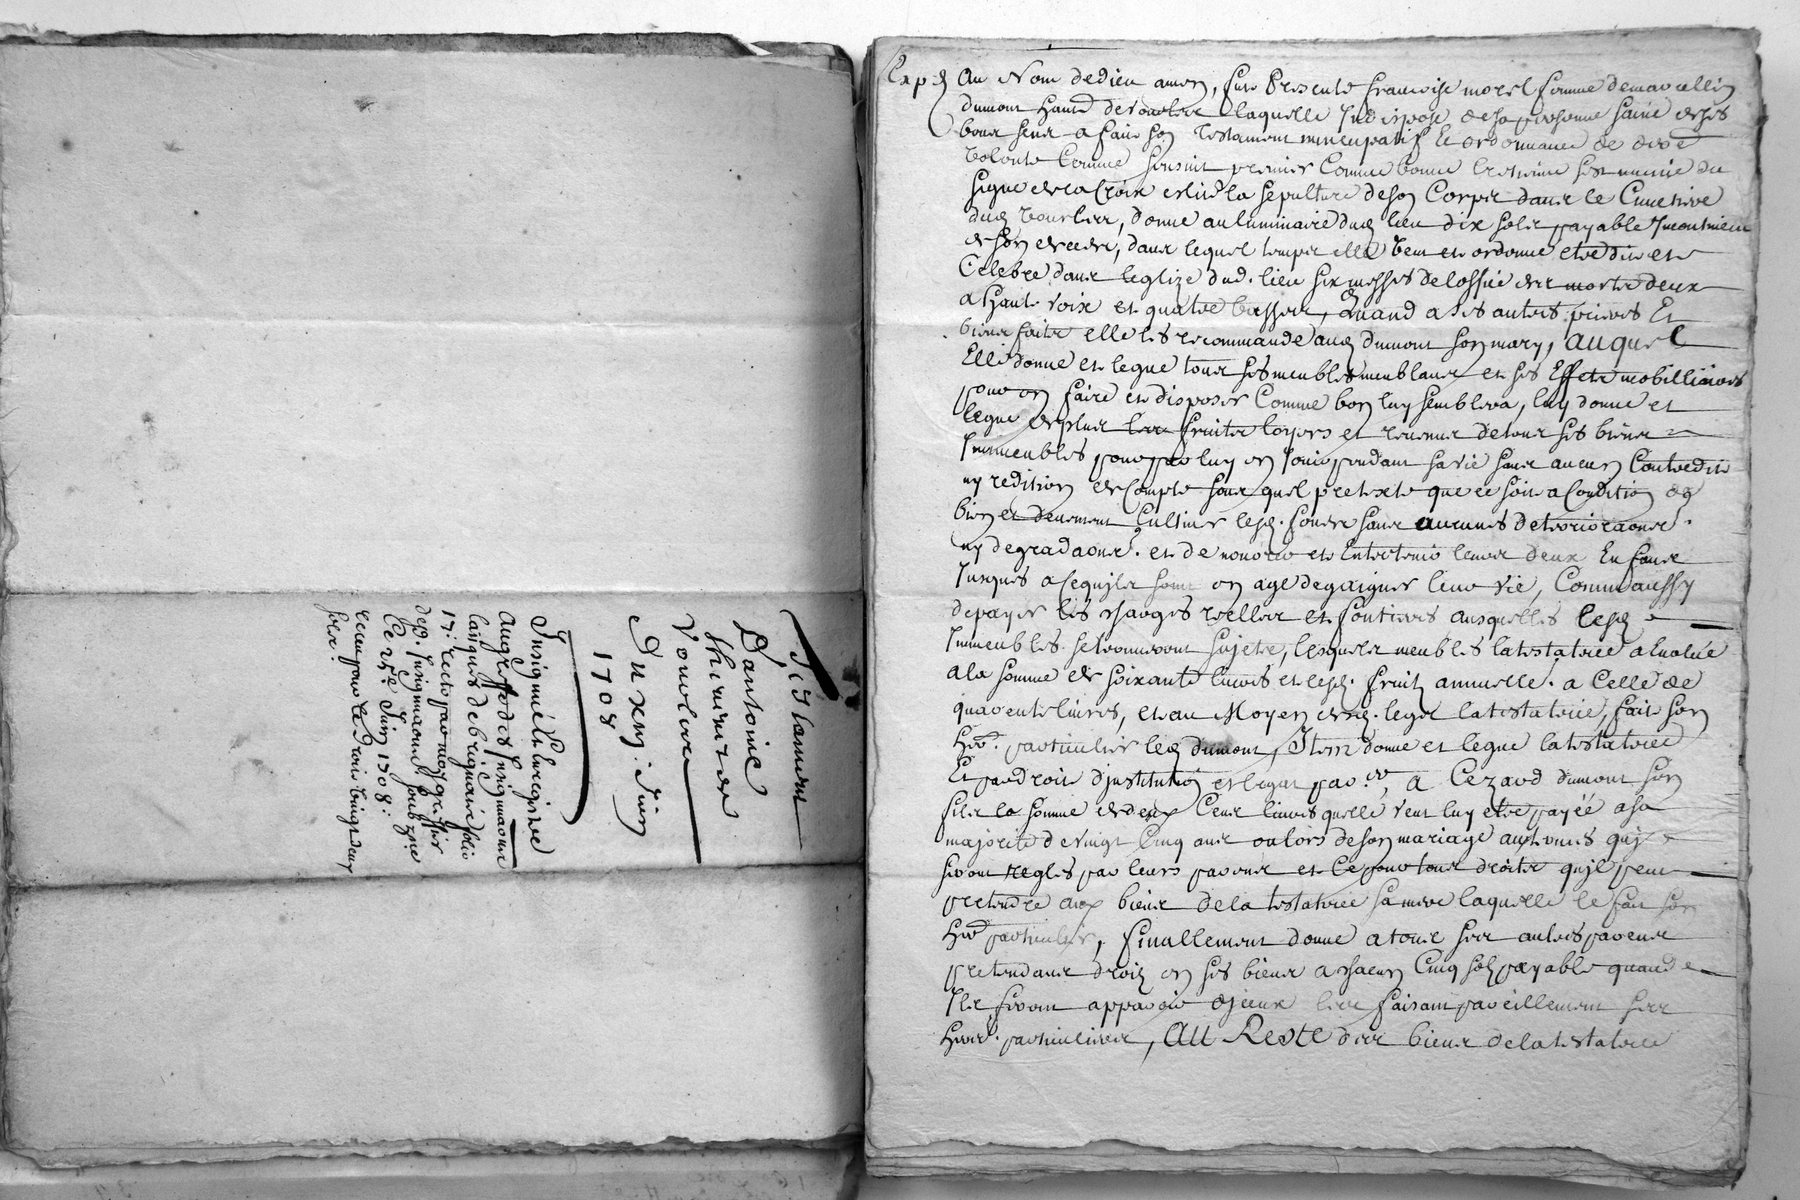 Testament
D'antoine
thimint de
Vourlere
Du xuj: Juin
1708
Insigné et Enregistré
au greffe des Insignuaons
laiques de brignais folio
17: recto par moy greffier
desd. Insignuaons soubzné
Ce 25e Juin 1708:
receu pour le droit vingt deux
solz.
Exp.d Au Nom de dieu amen, fust Presente francoise morel femme de marcellin
dumont hante de Vourlere laquelle Indispose de sa personne saine de ses
bons sens a fait son testament nuncupatif Et ordonnance de dere
volonte Comme sensuit premier Comme bonne crestienne sest munie du
signe de la Croix eslit la sepulture de son Corps dans le Cimetiere
dud vourlere, donne au luminaire dud lieu dix sols payable Incontinent
de son deceds, dans lequel temps elle veut et ordonne etre dit et
Celebre dans leglize dud. lieu six messes de loffice des morts deux
a haute voix et quatre basses, Quand a ses autres prieres Et
bienfaits elle les recommande aud dumont son mary, auquel
Elle donne et legue tous ses meubles meublans et ses Effets mobilliaires
pour en faire et disposer Comme bon luy semblera, luy donne et
legue de plus les fruits loyers et revenus de tous ses biens
Immeubles pour par luy en Jouir pendant sa vie sans aucun Contredit
ny redition de Compte sous quel pretexte que ce soit a Condition de
bien et deuement Cultiver lesd. fonds sans aucunes deterioraons.
ny degradaons. et de nourrir et Entretenir leurs deux Enfans
Jusques a Cequils sont en age de gaigner leur vie, Comme aussy
de payer les charges reelles et fontieres ausquelles lesd
Immeubles se trouveront sujets, lesquels meubles la testatrice a Evalué
a la somme de soixante livres et lesd. fruitz annuelle. a Celle de
quarente livres, et au Moyen desd. legat la testatrice, fait son
her. particulier led dumont, Item donne et legue la testatrice
Et par droit d'institution et legat par.er, a Cezard dumont son
fils la somme de deux Cens livres quelle veut luy etre payée a sa
majorité de vingt Cinq ans ou lors de son mariage aux termes qui
seront regles par leurs parens et ce pour tous droits quil peut
pretendre aux biens de la testatrice sa mere laquelle le fait son
her particulier, finallement donne a tous ses autres parens
pretendans droit en ses biens a chacun Cinq solz payable quand
Ils feront apparoir dJceux les faisant pareillement ses
hers. particuliers, Au Reste des biens de la testatrice